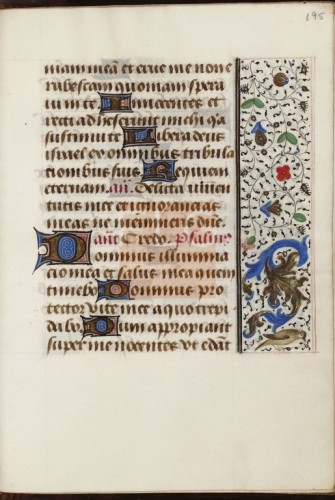 195
mam meā et erue me non e
rubescam quoniam spera
ui in te Innocentes et
recti adheserunt michi q̄a
sustinui te Libera deus
israel ex omnibus tribula
tionibus suis Requiem
eternam. an̄. Delicta iuuen
tutis mee et ignorancias
meas ne memineris dn̄e.
an̄e Credo. Psalm9
Dominus illumina
cio mea et salus mea quem
timebo Dominus pro
tector vite mee a quo trepi
dabo. Dum appropiant
super me nocentes vt edant